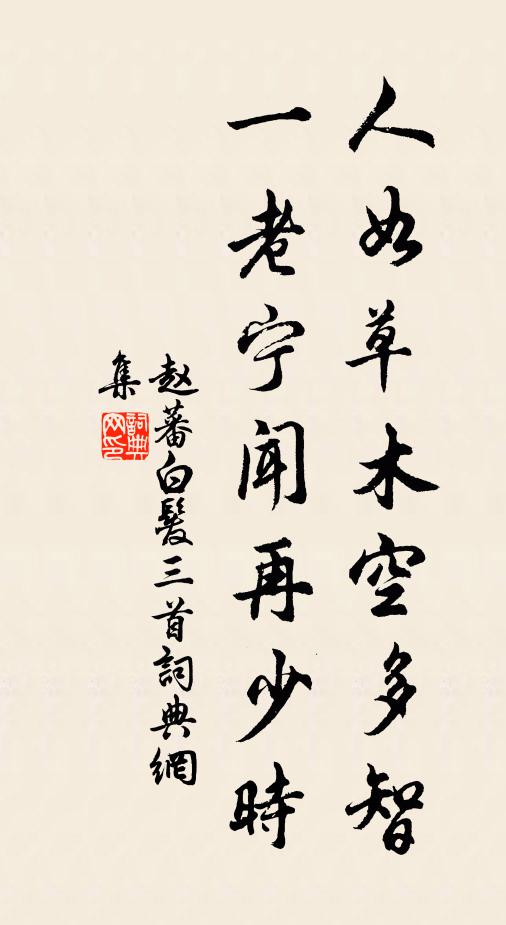 人如草木空多智
一老宁闻再少時
赵蕃白髮三首詞典網
集
詞典
网印